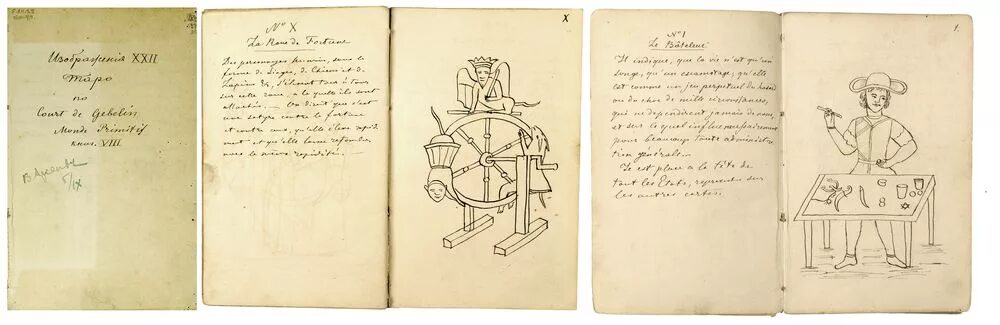 Изображенія XXII
Таро
по
Court de Gebelin
Monde Primitif
книг. VIII.
5/IX
Nº X
La Roue de Fortune
Des personnages humains, sous la
forme de Singes, de Chiens et de
Lapins &, s'élèvent tour à tour
sur cette roue à laquelle ils sont
attachés. — On dirait que c'est
une satyre contre la fortune
et contre ceux, qu'elle élève rapide
ment et qu'elle laisse retomber
avec la même rapidité. —
X
Nº 1
Le Bâteleur
Il indique, que la vie n'est qu'un
songe, qu'un escamotage, qu'elle
est comme un jeu perpetuel du hasard
ou du choc de mille circonstances,
qui ne dependirent jamais de nous,
et sur lequel influe nécessairement
pour beaucoup toute administra
tion générale. —
Il est placé a la tête de
tout les Etats, représentés sur
les autres cartes.
1.